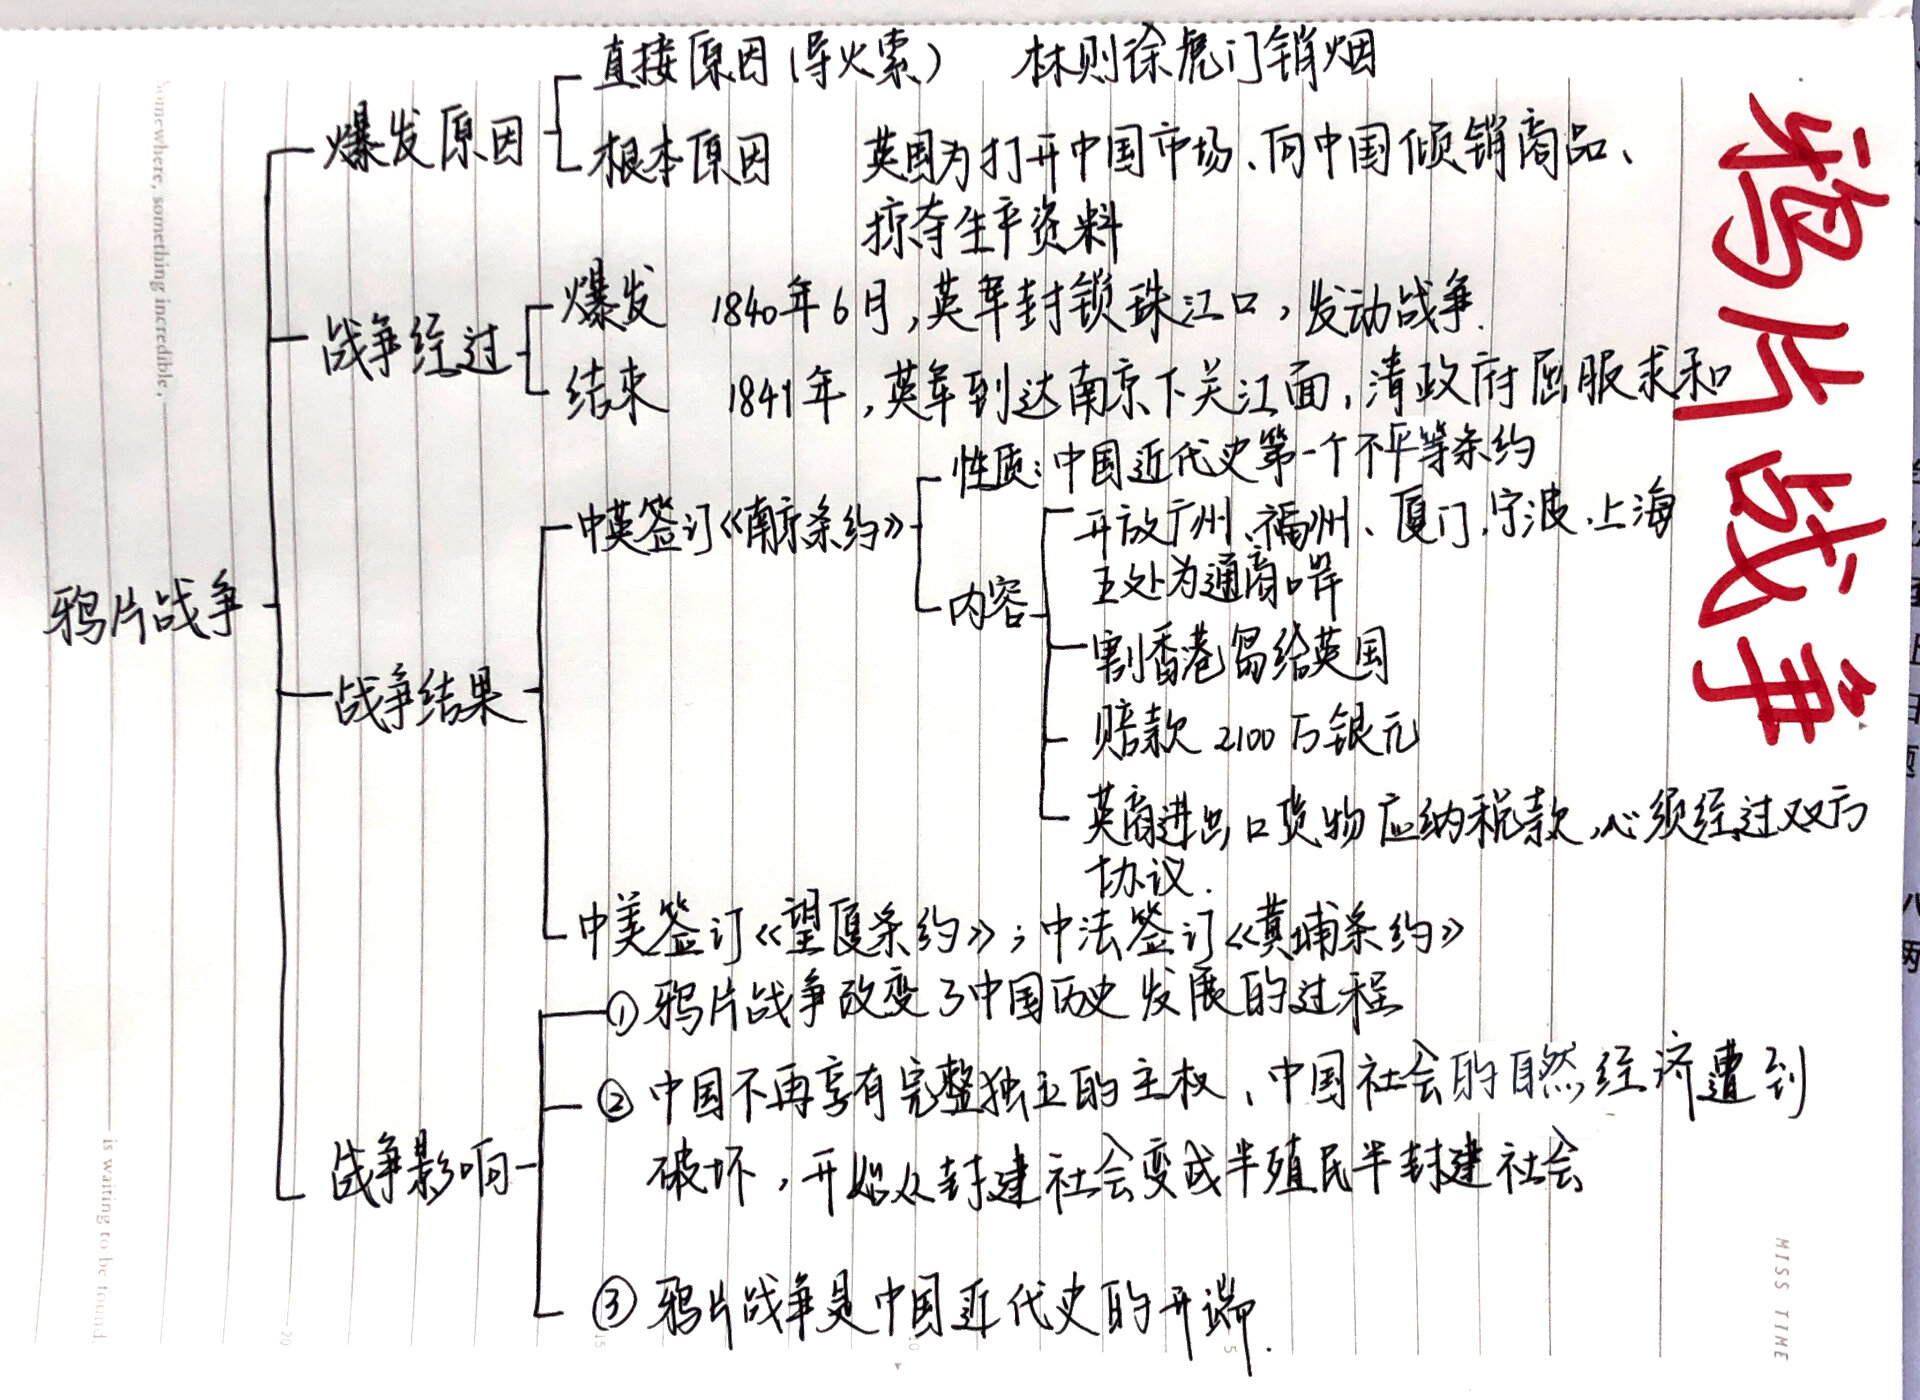 鸦片战争
直接原因(导火索) 林则徐虎门销烟
爆发原因
根本原因 英国为打开中国市场、向中国倾销商品、
掠夺生产资料
爆发 1840年6月,英军封锁珠江口,发动战争.
战争经过
结束 1841年,英军到达南京下关江面,清政府屈服求和
性质:中国近代史第一个不平等条约
中英签订《南京条约》
开放广州、福州、厦门、宁波、上海
五处为通商口岸
内容
割香港岛给英国
鸦片战争
战争结果
赔款2100万银元
英商进出口货物应纳税款,必须经过双方
协议.
中美签订《望厦条约》;中法签订《黄埔条约》
①鸦片战争改变了中国历史发展的过程
②中国不再享有完整独立的主权、中国社会的自然经济遭到
战争影响
破坏,开始从封建社会变成半殖民半封建社会
③鸦片战争是中国近代史的开端.
Somewhere, something incredible,
is waiting to be found
MISS TIME
20
15
10
5